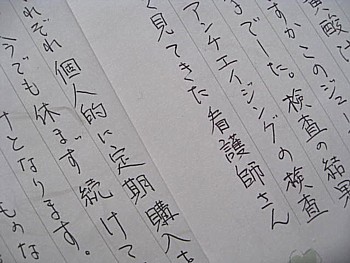 黄酸は
すか このジュー
までした。検査の結果
アンチエイジングの検査
く見てきた看護師さん
れぞれ個人的に定期購入を
今でも休まず続けて
となります。
ものな